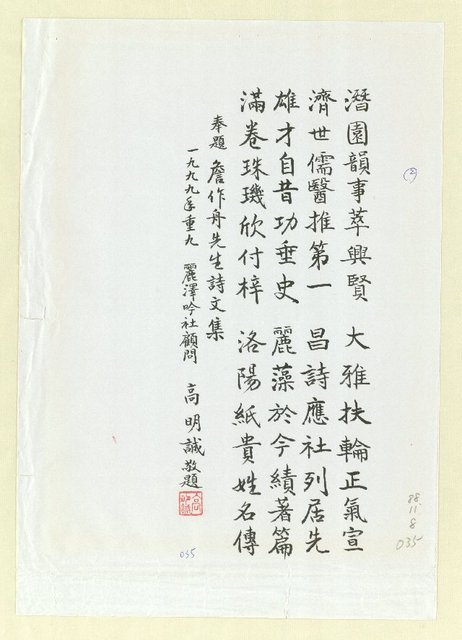 潛園韻事萃興賢　大雅扶輪正氣宣
濟世儒醫推第一　昌詩應社列居先
雄才自昔功垂史　麗藻於今績著篇
滿卷珠璣欣付梓　洛陽紙貴姓名傳
奉題　詹作舟先生詩文集
一九九九年重九　麗澤吟社顧問　高明誠敬題
(2)
88.
11.
8
035
035